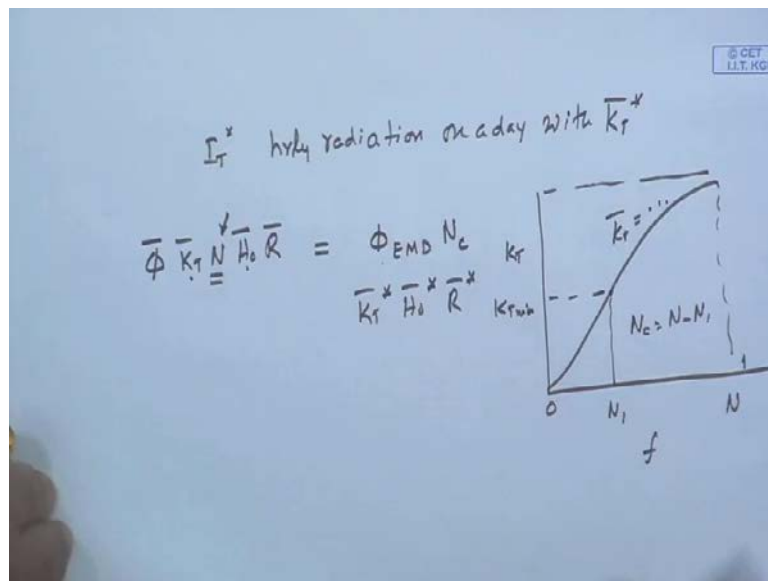 © CET
I.I.T. KG
I_T^* hrly radiation on a day with K̄_T^*
Φ̄ K̄_T N H̄_0 R̄ = Φ_EMD N_c
K̄_T^* H̄_0^* R̄^*
K̄_T = ...
K_T
K_Tmin
N_c = N - N_1
0 N_1 N 1
f